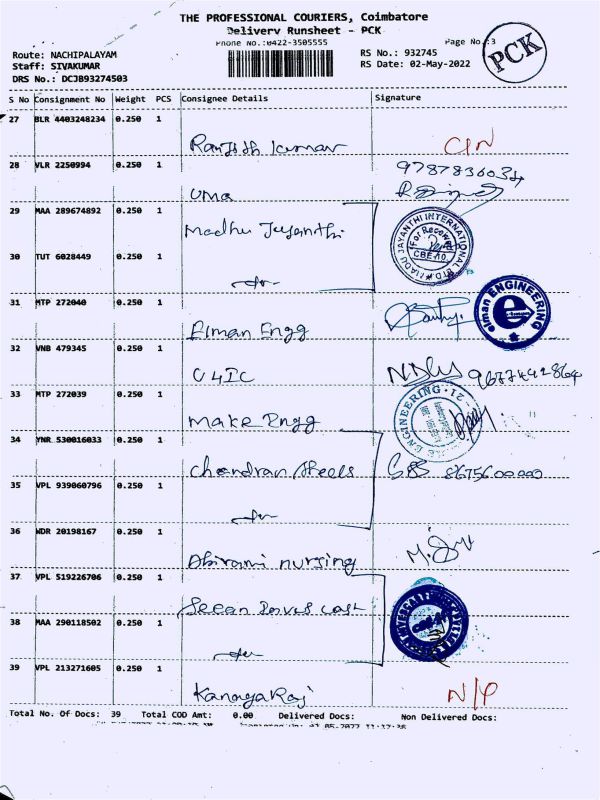 THE PROFESSIONAL COURIERS, Coimbatore
Delivery Runsheet - PCK
Phone No.:0422-3505555
Page No.:3
PCK
Route: NACHIPALAYAM
RS No.: 932745
Staff: SIVAKUMAR
RS Date: 02-May-2022
DRS No.: DCJB93274503
S No Consignment No Weight PCS Consignee Details Signature
27 BLR 4403248234 0.250 1
Ranjith kumar C/N
28 VLR 2250994 0.250 1
9787836034
Uma
29 MAA 289674892 0.250 1
Madhu Jayanthi
JAYANTHI INTERNATIONAL
For Receive
CBE 10
30 TUT 6028449 0.250 1
-do-
31 MTP 272040 0.250 1
Elman Engg
elman ENGINEERING
e
32 VNB 479345 0.250 1
U4IC
33 MTP 272039 0.250 1
Make Engg
ENGINEERING
34 YNR 530016033 0.250 1
Chandran Steels
35 VPL 939060796 0.250 1
-do-
36 WDR 20198167 0.250 1
Abirami nursing
37 VPL 519226706 0.250 1
38 MAA 290118502 0.250 1
-do-
39 VPL 213271605 0.250 1
KanagaRaj N/P
Total No. Of Docs: 39 Total COD Amt: 0.00 Delivered Docs: Non Delivered Docs: